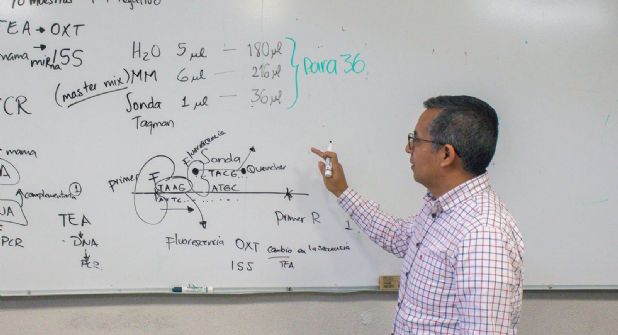 10 muestras
negativo
TEA → OXT
mama miRNA ISS
H2O 5 µl — 180 µl
(master mix) MM 6 µl — 216 µl
Sonda 1 µl — 36 µl
Taqman
para 36
PCR
mama
Fluorescencia
Sonda
TACG
Quencher
primer F
TAAG ATGC
complementaria 1
TEA
DNA
PCR
PCR
Primer R 1
Fluorescencia OXT cambio en la secuencia
ISS TEA